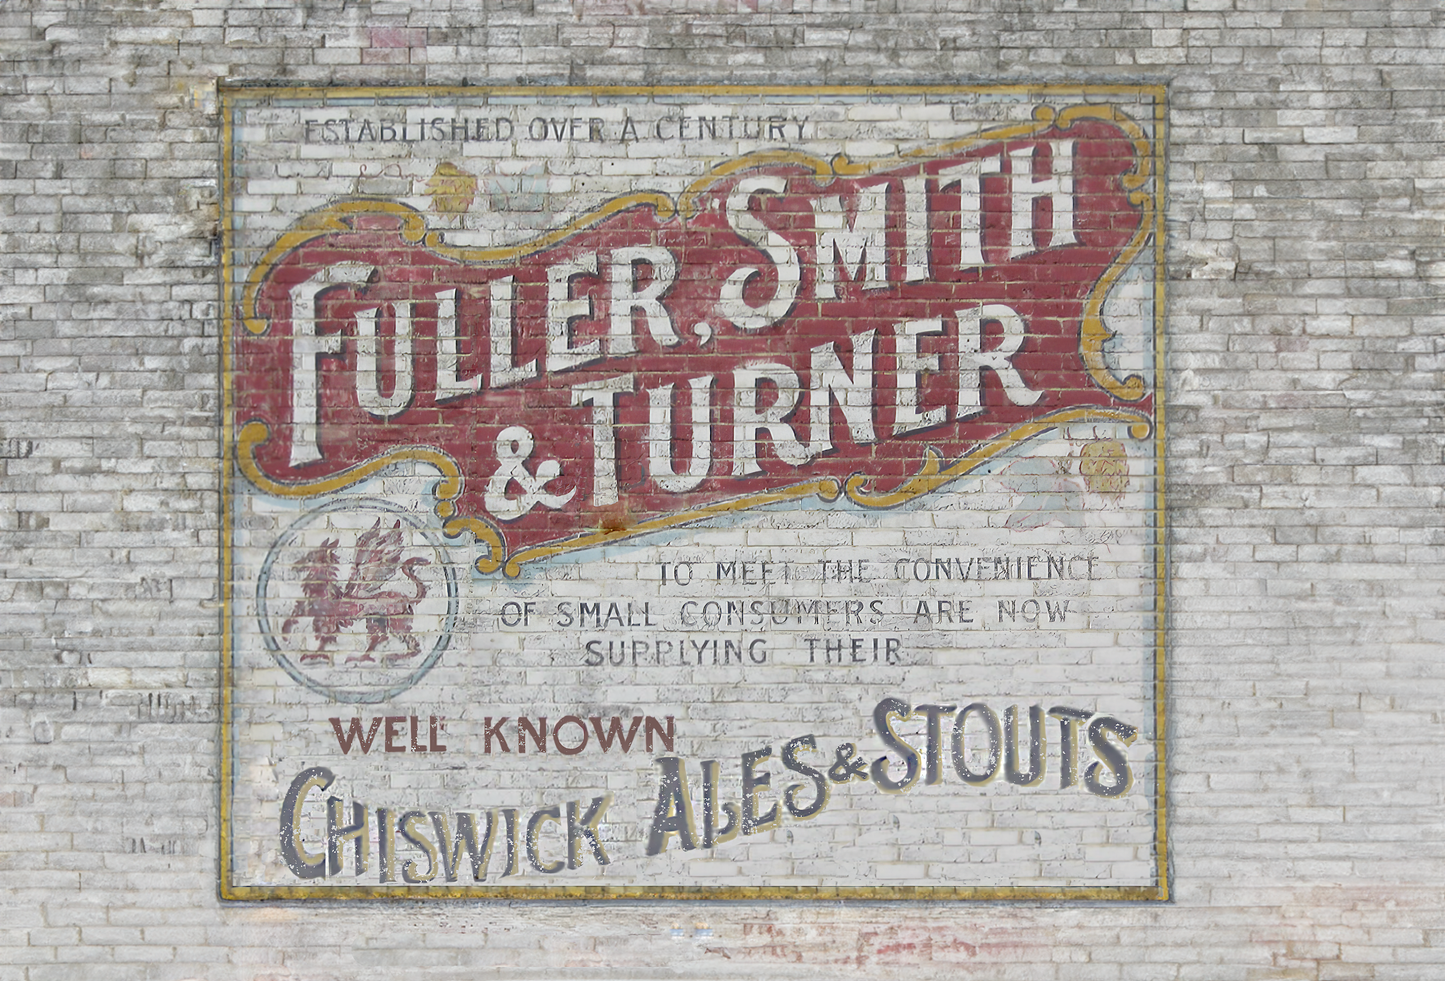 ESTABLISHED OVER A CENTURY
FULLER, SMITH
& TURNER
TO MEET THE CONVENIENCE
OF SMALL CONSUMERS ARE NOW
SUPPLYING THEIR
WELL KNOWN
CHISWICK ALES & STOUTS